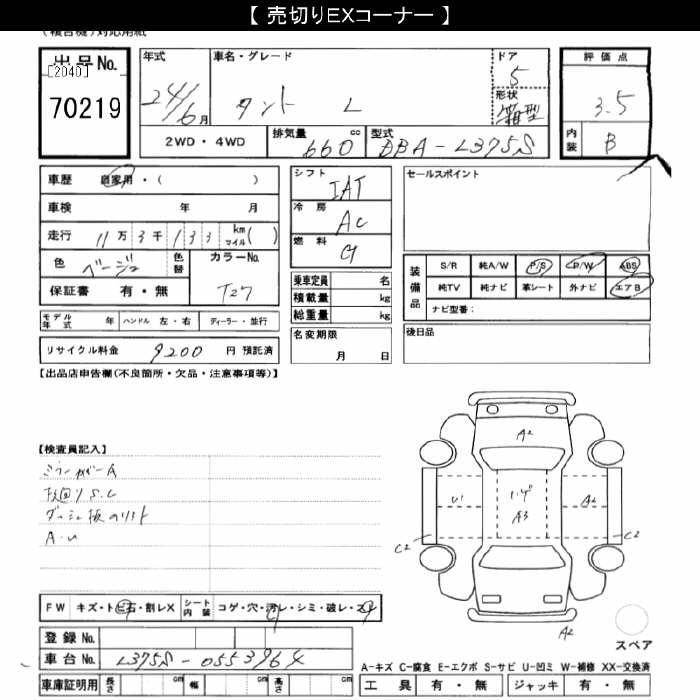 【 売切りEXコーナー 】
(複合機)対応用紙
出品No.
[2040]
70219
年式
24/6月
車名・グレード
タント L
ドア
5
形状
箱型
評価点
3.5
内装
B
2WD・4WD
排気量
660 cc
型式
DBA-L375S
車歴 自家用・( )
車検 年 月
走行 11万3千133 km マイル( )
色 ベージュ
色替
カラーNo.
T27
保証書 有・無
シフト
IAT
冷房
AC
燃料
G
乗車定員 名
積載量 kg
総重量 kg
名変期限
月 日
セールスポイント
装備品
S/R 純A/W P/S P/W ABS
純TV 純ナビ 革シート 外ナビ エアB
ナビ型番:
後日品
モデル年式 年 ハンドル 左・右 ディーラー・並行
リサイクル料金 9200 円 預託済
【出品店申告欄(不良箇所・欠品・注意事項等)】
【検査員記入】
ミラーカバーA
S.C
A.U
A2
U1
A3
A2
C2
C2
A2
スペア
FW キズ・トビ石・割レX シート内装 コゲ・穴・汚レ・シミ・破レ・スレ
登録No.
車台No. L375S-0553964
車庫証明用 長さ cm 幅 cm 高さ cm
A-キズ C-腐食 E-エクボ S-サビ U-凹ミ W-補修 XX-交換済
工具 有・無 ジャッキ 有・無